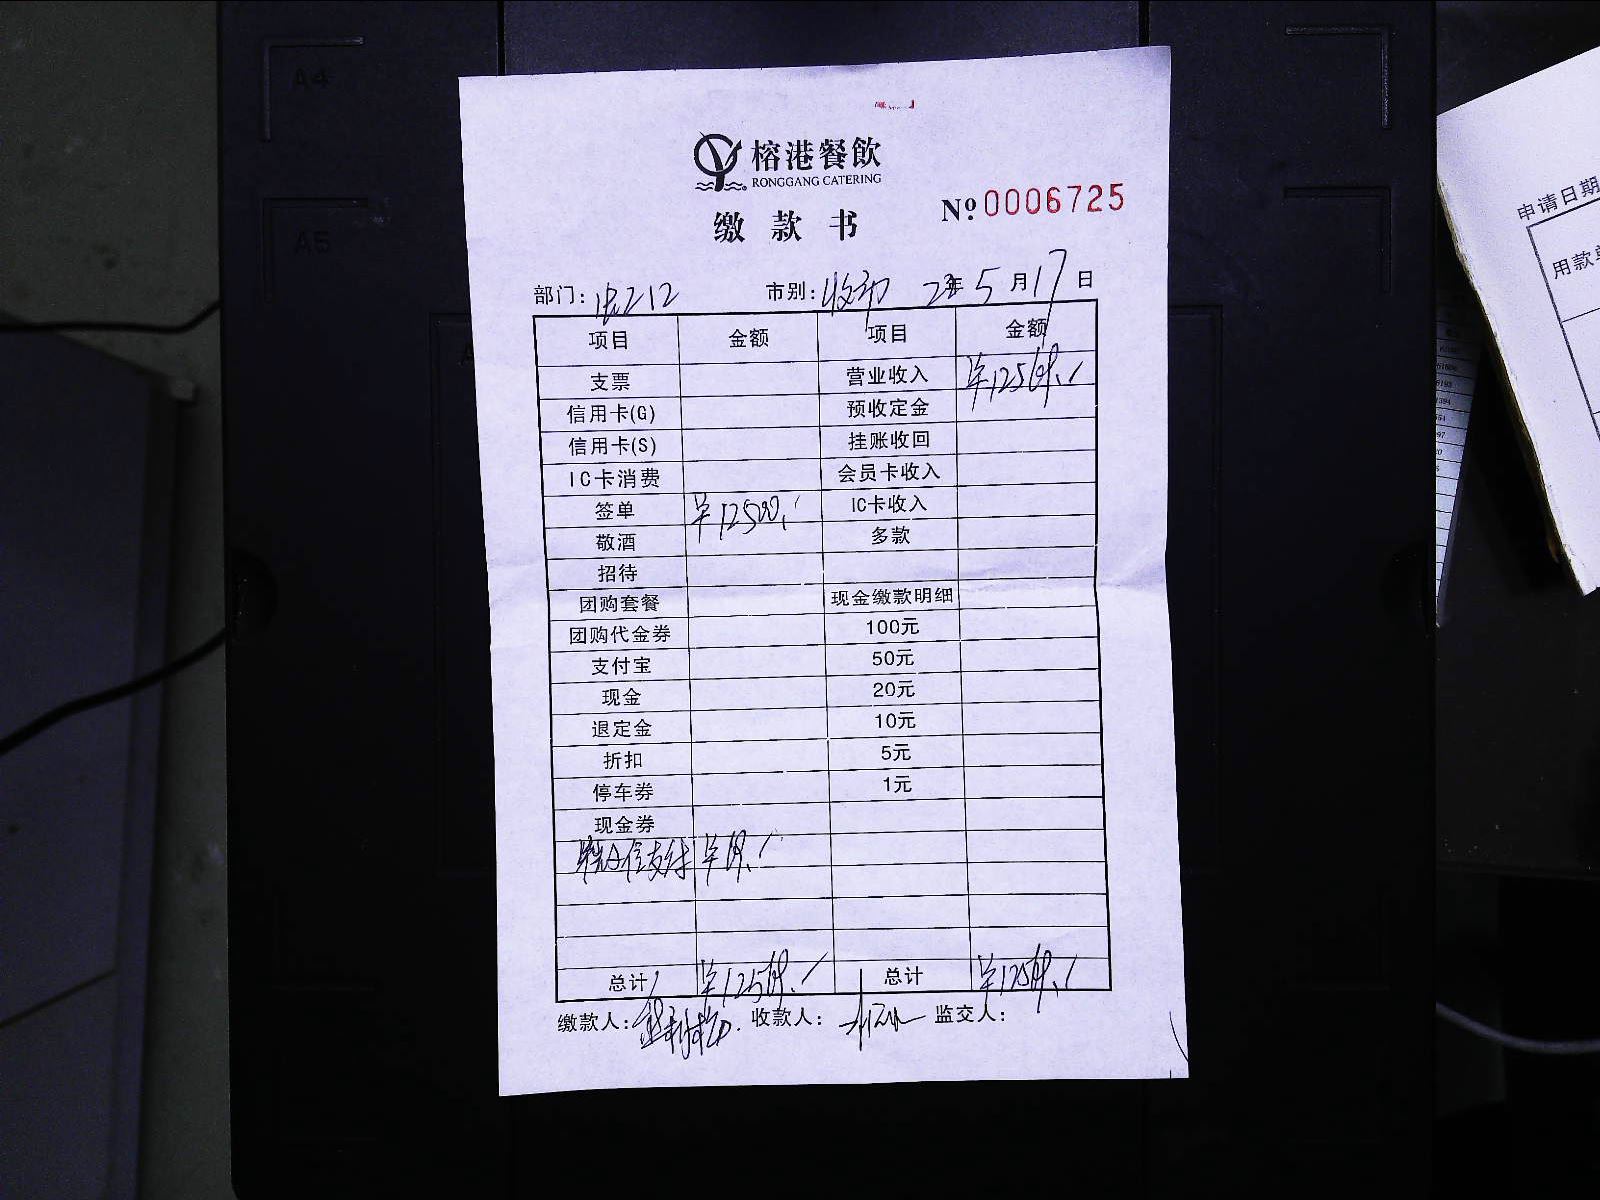 榕港餐飲
RONGGANG CATERING
缴款书
№0006725
部门: 市别: 年5月17日
项目 金额 项目 金额
支票 营业收入
信用卡(G) 预收定金
信用卡(S) 挂账收回
IC卡消费 会员卡收入
签单 ¥12500. IC卡收入
敬酒 多款
招待
团购套餐 现金缴款明细
团购代金券 100元
支付宝 50元
现金 20元
退定金 10元
折扣 5元
停车券 1元
现金券
信支付
总计 总计
缴款人: 收款人: 监交人:
A4
A5
申请日期
用款单